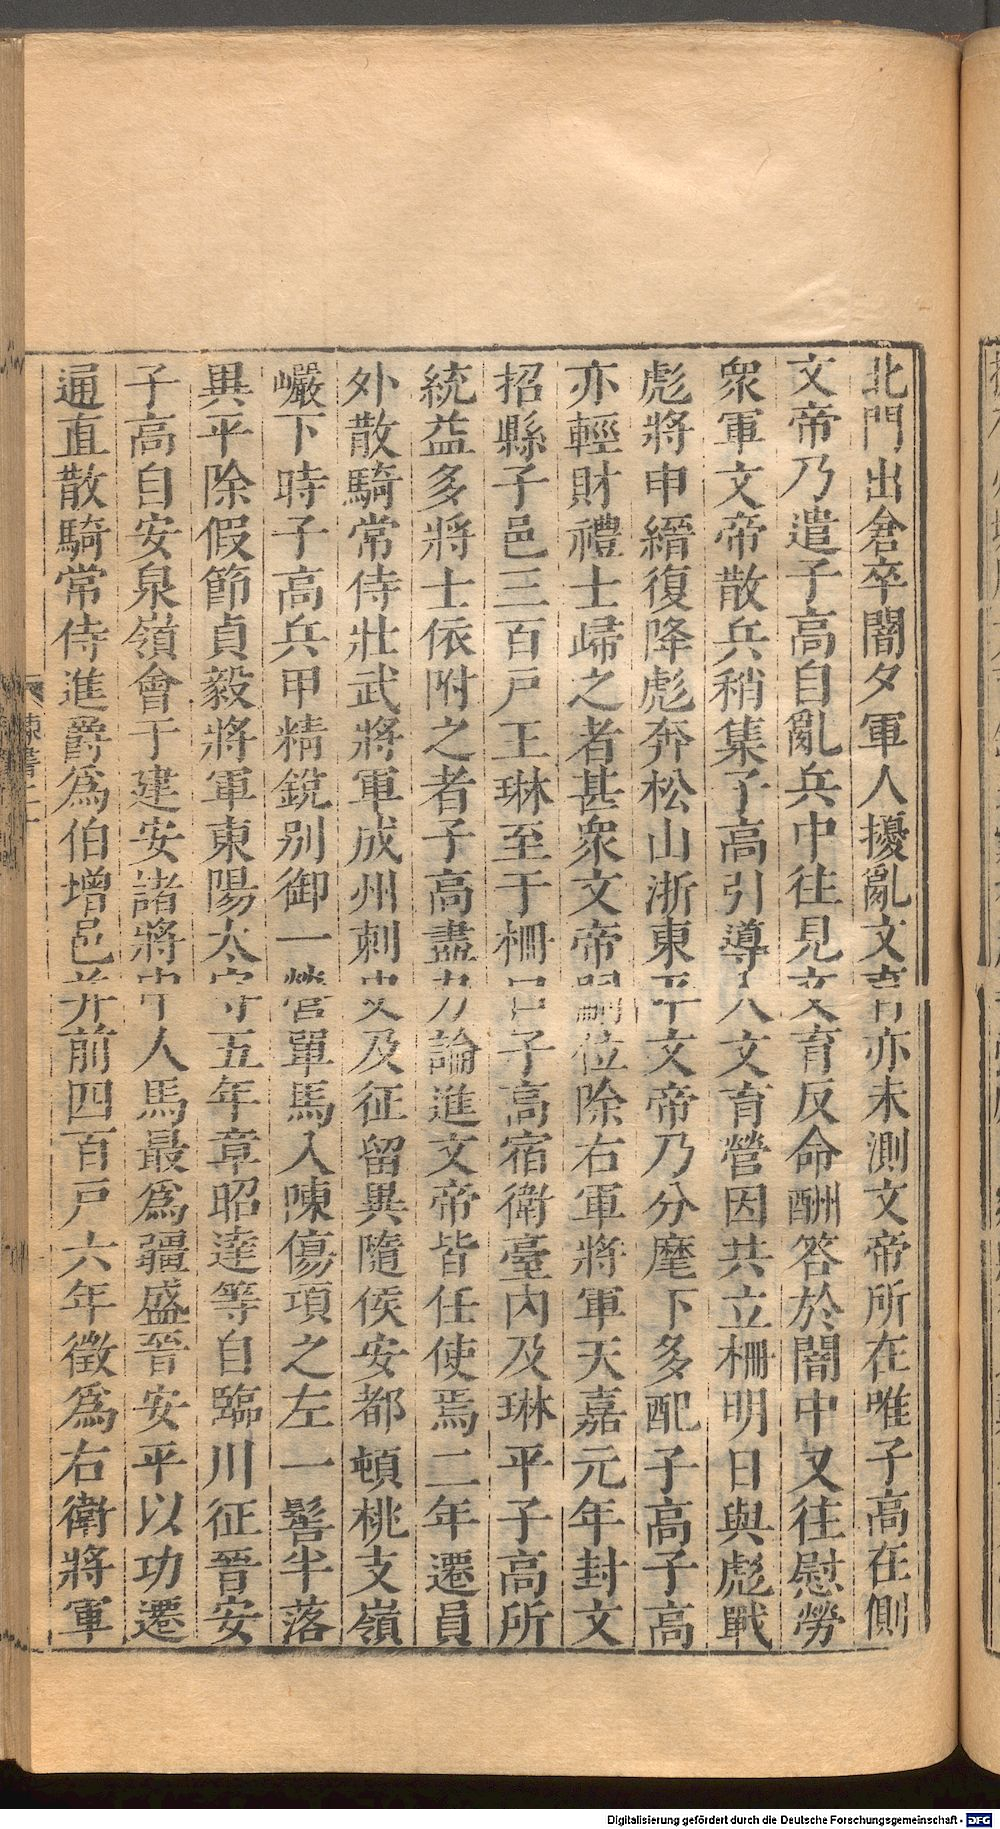 北門出倉卒闇夕軍人擾亂文育亦未測文帝所在唯子高在側
文帝乃遣子高自亂兵中往見文育反命酬答於闇中又往慰勞
衆軍文帝散兵稍集子高引導入文育營因共立柵明日與彪戰
彪將申縉復降彪奔松山浙東平文帝乃分麾下多配子高子高
亦輕財禮士歸之者甚衆文帝嗣位除右軍將軍天嘉元年封文
招縣子邑三百戸王琳至于柵口子高宿衛臺内及琳平子高所
統益多將士依附之者子高盡力論進文帝皆任使焉二年遷員
外散騎常侍壯武將軍成州刺史及征留異隨侯安都頓桃支嶺
巗下時子高兵甲精銳别御一營單馬入陳傷項之左一髻半落
異平除假節貞毅將軍東陽太守五年章昭達等自臨川征晉安
子高自安泉嶺會于建安諸將中人馬最爲彊盛晉安平以功遷
通直散騎常侍進爵爲伯増邑并前四百戸六年徵爲右衛將軍
Digitalisierung gefördert durch die Deutsche Forschungsgemeinschaft - DFG